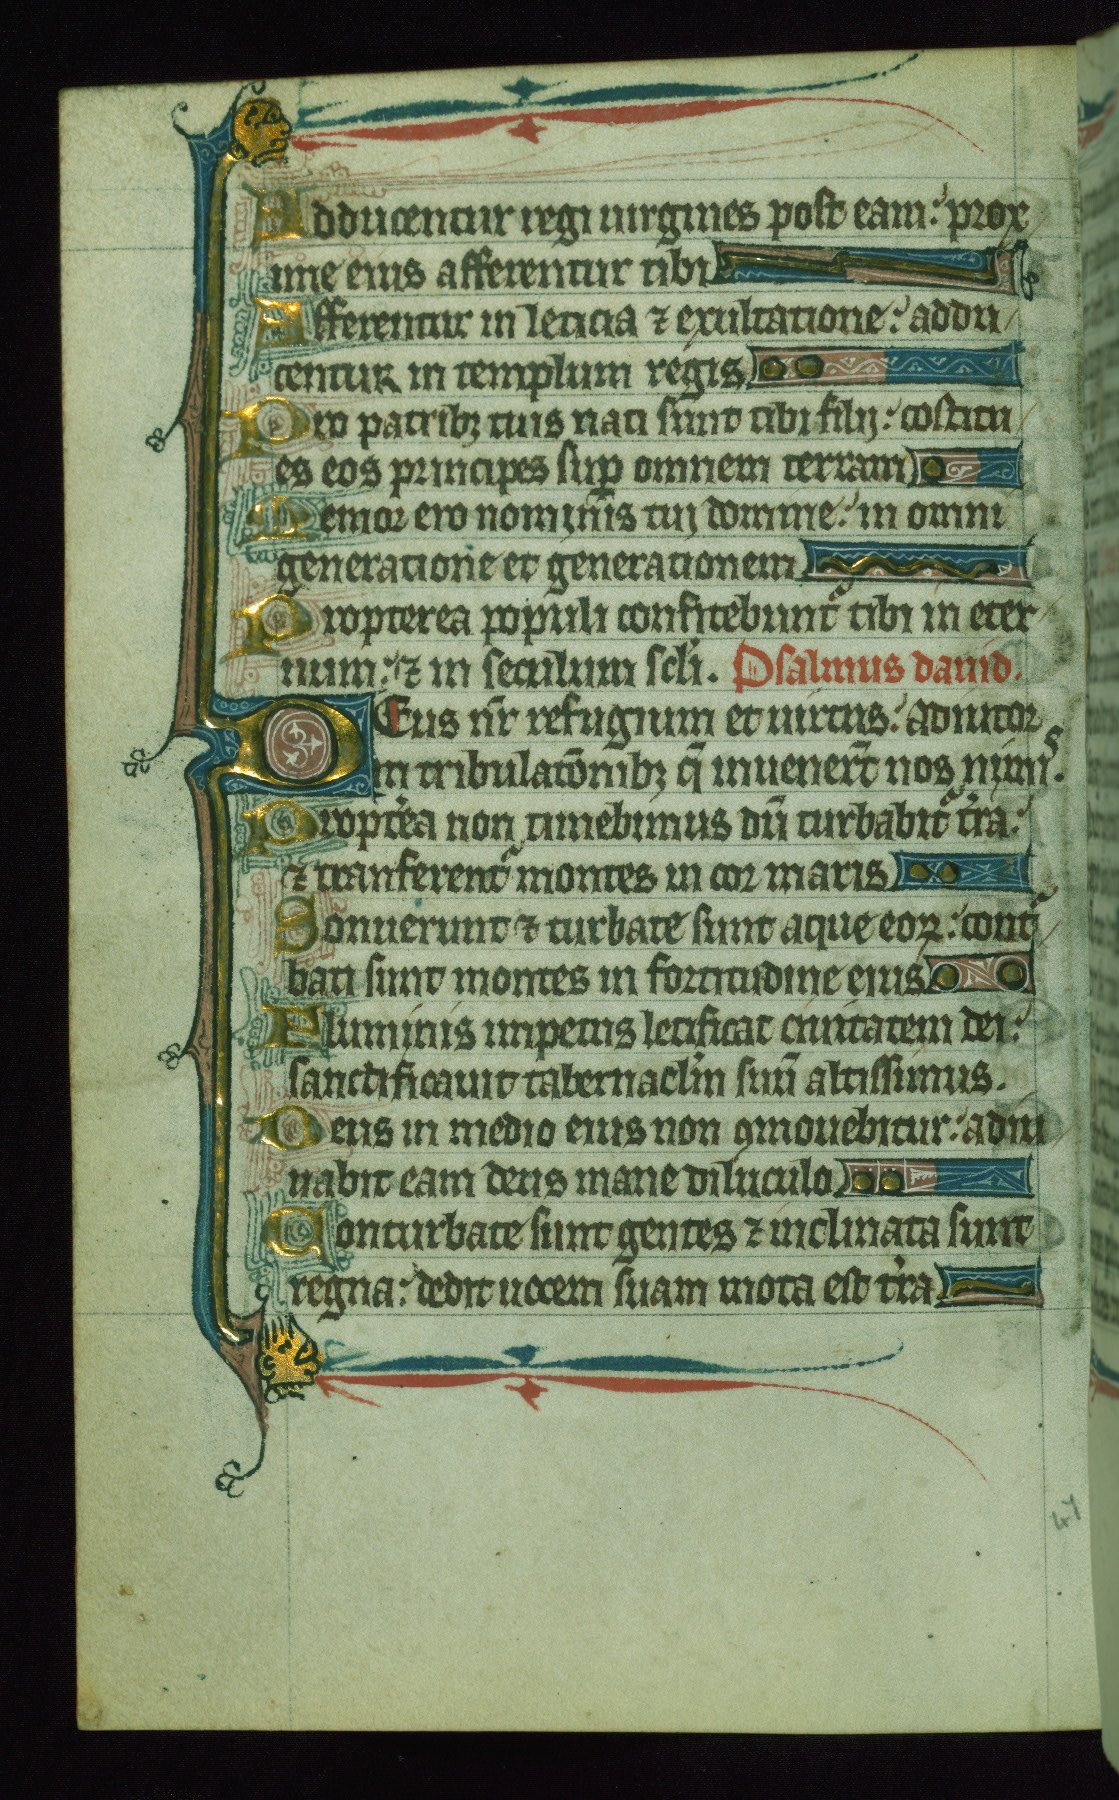 Adducentur regi uirgines post eam: prox
ime eius afferentur tibi
Afferentur in leticia ⁊ exultatione: addu
centur in templum regis
Pro patribꝫ tuis nati sunt tibi filij: cōstitu
es eos principes suꝑ omnem terram
Memor ero nominis tui domine: in omni
generatione et generationem
Propterea populi confitebunt᷑ tibi in eter
num: ⁊ in seculum scl̄i. Psalmus dauid.
Deus nr̄ refugium et uirtus: adiutor
in tribulatōnibꝫ q̄ inuenerūt nos nimis.
Propt̾ea non timebimus dū turbabit᷑ t̾ra:
⁊ tranferent᷑ montes in cor maris
Sonuerunt ⁊ turbate sunt aque eoꝝ: contᷓ
bati sunt montes in fortitudine eius
Fluminis impetus letificat ciuitatem dei:
sanctificauit tabernaclm̄ suū altissimus.
Deus in medio eius non ꝯmouebitur: adiu
uabit eam deus mane diluculo
Conturbate sunt gentes ⁊ inclinata sunt
regna: dedit uocem suam mota est t̾ra
47